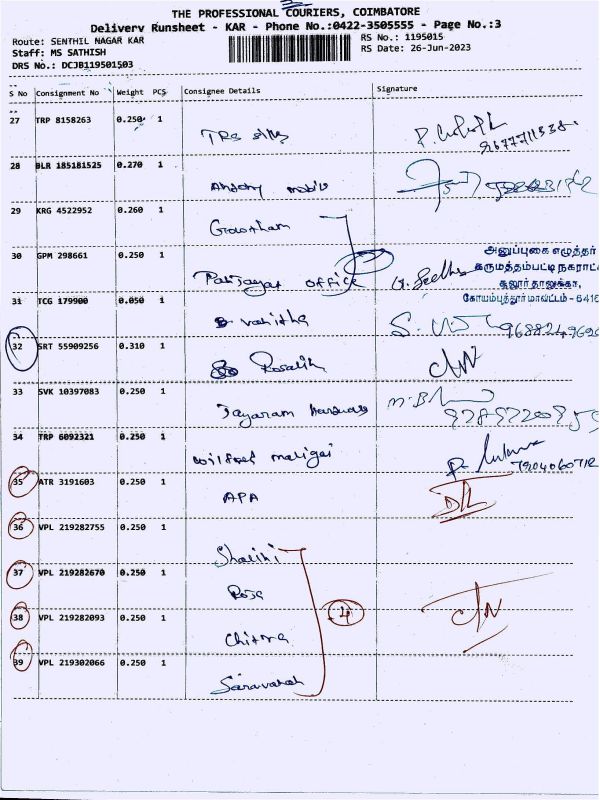 THE PROFESSIONAL COURIERS, COIMBATORE
Delivery Runsheet - KAR - Phone No.:0422-3505555 - Page No.:3
Route: SENTHIL NAGAR KAR
RS No.: 1195015
Staff: MS SATHISH
RS Date: 26-Jun-2023
DRS No.: DCJB119501503
S No Consignment No Weight PCS Consignee Details Signature
27 TRP 8158263 0.250 1
TRS silks
28 BLR 185181525 0.270 1
Antony mobile
29 KRG 4522952 0.260 1
Gowtham
30 GPM 298661 0.250 1
office
அனுப்புகை எழுத்தர்
கருமத்தம்பட்டி நகராட்
சூலூர் தாலுக்கா,
கோயம்புத்தூர் மாவட்டம் - 6416
31 TCG 179900 0.050 1
vanitha
32 SRT 55909256 0.310 1
Rosalin
33 SVK 10397083 0.250 1
Jayaram
34 TRP 6092321 0.250 1
maligai
7904060712
35 ATR 3191603 0.250 1
APA
DL
36 VPL 219282755 0.250 1
Shalini
37 VPL 219282670 0.250 1
Roja
4
38 VPL 219282093 0.250 1
Chitra
39 VPL 219302066 0.250 1
Saravanan